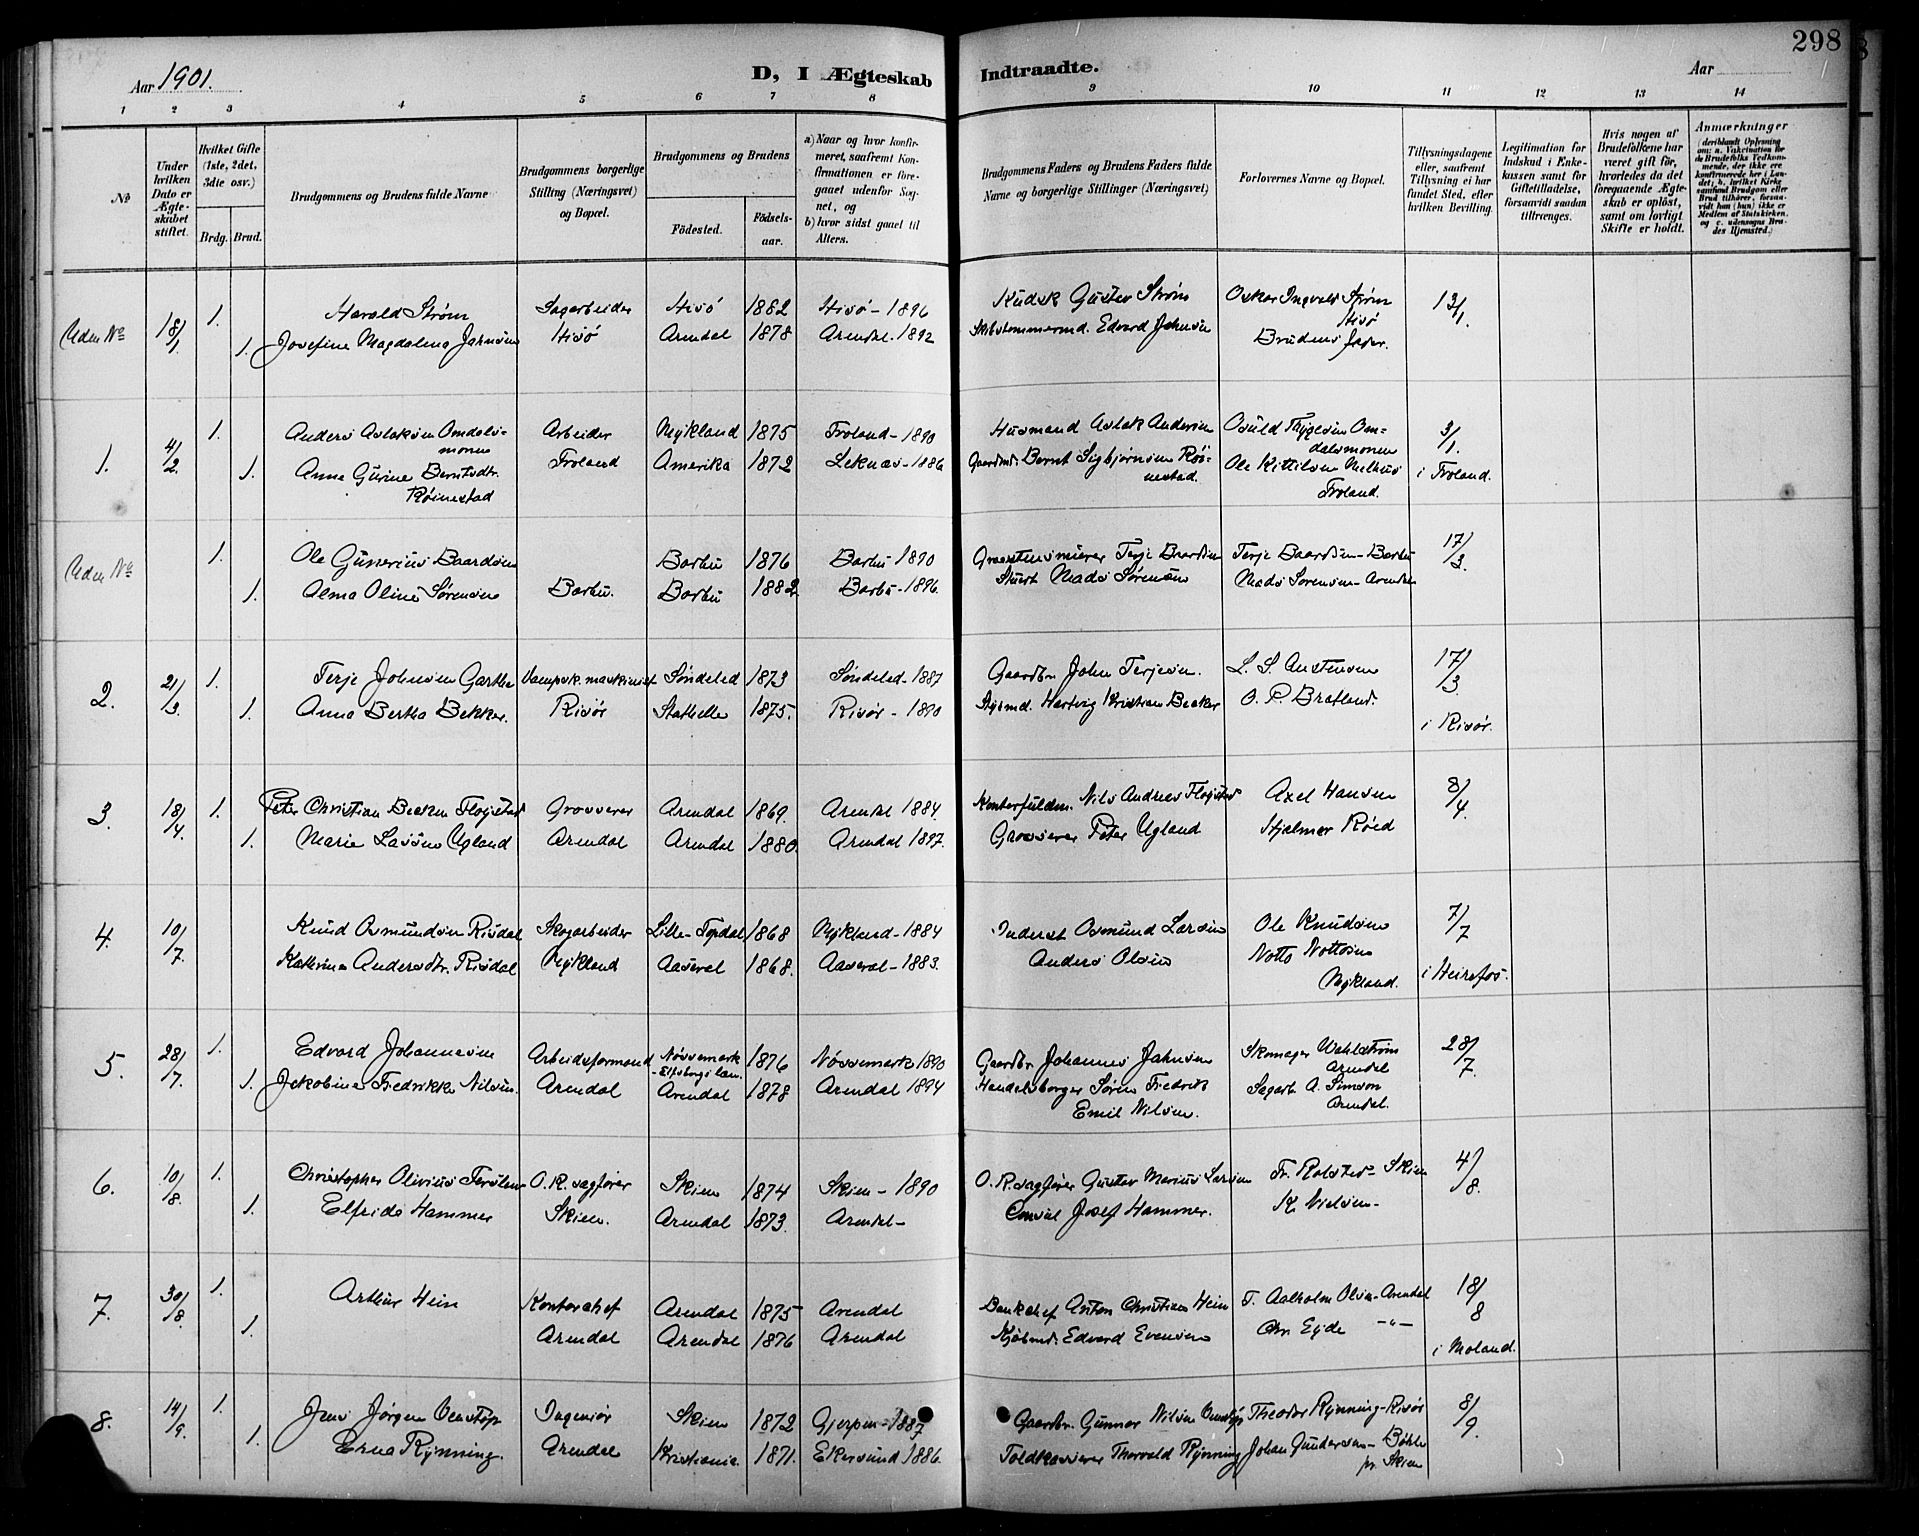 298
Aar 1901.
D, I Ægteskab Indtraadte.
Aar
1 2 3 4 5 6 7 8 9 10 11 12 13 14
No
Under hvilken Dato er Ægteskabet stiftet.
Hvilket Gifte (1ste, 2det, 3die osv.)
Brdg. Brud.
Brudgommens og Brudens fulde Navne
Brudgommens borgerlige Stilling (Næringsvei) og Bopæl.
Brudgommens og Brudens
Födested.
Födsels-aar.
a) Naar og hvor konfirmeret, saafremt Konfirmationen er foregaaet udenfor Sognet, og
b) hvor sidst gaaet til Alters.
Brudgommens Faders og Brudens Faders fulde Navne og borgerlige Stillinger (Næringsvei)
Forlovernes Navne og Bopæl.
Tillysningsdagene eller, saafremt Tillysning ei har fundet Sted, efter hvilken Bevilling.
Legitimation for Indskud i Enkekassen samt for Giftetilladelse, forsaavidt saadan tiltrænges.
Hvis nogen af Brudefolkene har været gift för, hvorledes da det foregaaende Ægteskab er oplöst, samt om lovligt Skifte er holdt.
Anmærkninger (deriblandt Oplysning om: a. Vakcination for de Brudefolks Vedkommende, der ikke ere konfirmerede her i Landet; b. hvilket Kirkesamfund Brudgom eller Brud tilhører, forsaavidt han (hun) ikke er Medlem af Statskirken, og c. udensogns Brudes Hjemsted.)
Uden No 18/1. 1. Harald Strøm Sagarbeider Hisö 1882 Hisö - 1896 Kudsk Gustav Strøm Oskar Ingvald Strøm Hisö 13/1.
1. Josefine Magdalena Jahnsen Hisö Arendal 1878 Arendal. 1892 Skibstømmermd. Edvard Jahnsen Brudens fader.
1. 4/2 1. Anders Aslaksen Omdalsmonen Arbeider Mykland 1875 Froland - 1890 Husmand Aslak Andersen Osuld Thygesen Omdalsmonen 3/1.
1. Anne Gurine Berntsdtr. Röinestad Froland Amerika 1872 Leknæs - 1886 Gaardmd. Bernt Sigbjørnsen Röinestad. Ole Kittilsen Melhus Froland. i Froland.
Uden No 1. Ole Gunerius Baardsen Barbu 1876 Barbu 1890 Terje Baardsen Terje Baardsen - Barbu 17/3.
1. Alma Oline Sørensen Barbu. Barbu 1882 Barbu - 1896. Mads Sørensen Mads Sørensen - Arendal
2. 21/3 1. Terje Johnsen Garthe Dampsk. maskinist Söndeled 1873 Söndeled - 1887 Gaardbr John Terjesen. L. S. Austensen 17/3.
1. Anna Bertha Bekker. Risör Stathelle 1875. Risör - 1890 Styrmd. Hartvig Kristian Becker O. P. Bratland. i Risör.
3. 18/4. 1. Peter Christian Flöjstad Grosserer Arendal 1869. Arendal 1884. Nils Andreas Flöjstad Axel Hansen 8/4.
1. Marie Lassen Ugland Arendal Arendal 1880. Arendal 1897. Grosserer Peter Ugland Hjalmar Röed
4. 10/7. Knud Osmundsen Risdal Skogarbeider Lille-Topdal 1868 Mykland - 1884 Inderst Osmund Larsen Ole Knudsen 7/7
Kathrine Andersdtr. Risdal Mykland Aaseral 1868. Aaseral - 1883. Anders Olsen Notto Nottosen Mykland. i Heirefos.
5. 28/7. 1. Edvard Johannesen Arbeidsformand Nössemark - Elfsborgs læn. 1876 Nössemark 1890 Gaardbr Johannes Jahnsen Skomager Wahlström Arendal 28/7.
1. Jakobine Fredrikke Nilsen. Arendal Arendal 1878 Arendal 1894 Handelsborger Sören Fredrik Emil Nilsen. Sagarb. A. Simson Arendal.
6. 10/8. 1. Christopher Olivius O. R. sagförer Skien 1874 Skien - 1890 O. R. sagförer Gustav Marius Larsen Fr. Rolsted - Skien 4/8.
1. Elfrida Hammer Skien. Arendal 1873. Arendal - Consul Josef Hammer. K. Nielsen -
7. 30/8. 1. Arthur Hein Kontorchef Arendal 1875 Arendal Bankchef Anton Christian Hein T. Aalholm Olsen - Arendal 18/8
1. Arendal Arendal 1876 Arendal Kjöbmd. Edvard Evensen Chr Eyde -"- i Moland.
8. 14/9. 1. Jens Jörgen Ingeniör Skien 1872 Gjerpen - 1887 Gaardbr. Gunnar Nilsen Theodor Rynning - Risör 8/9.
1. Erna Rynning. Arendal Kristiania. 1871. Ekersund 1886. Toldkasserer Thorvald Rynning Johan Gundersen - Böhle pr. Skien